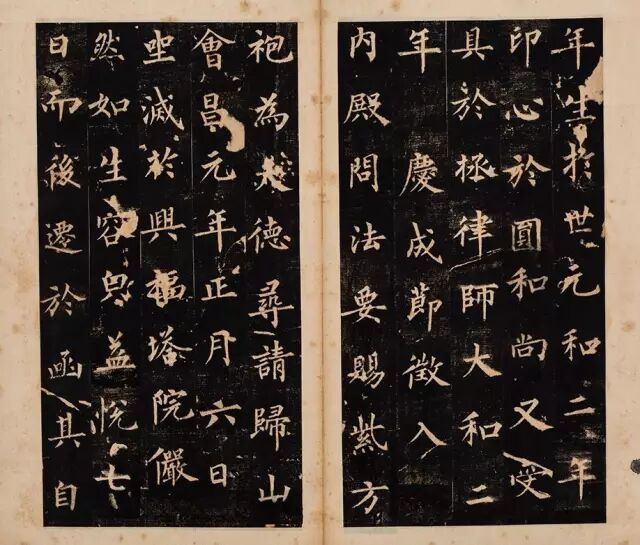 年生扵世元和二年
印心於圓和尚又受
具於拯律師大和二
年慶成節徵入
内殿問法要賜紫方
袍為大德尋請歸山
會昌元年正月六日
坐滅於興福塔院儼
然如生容皃益悅七
日而後遷於函其自